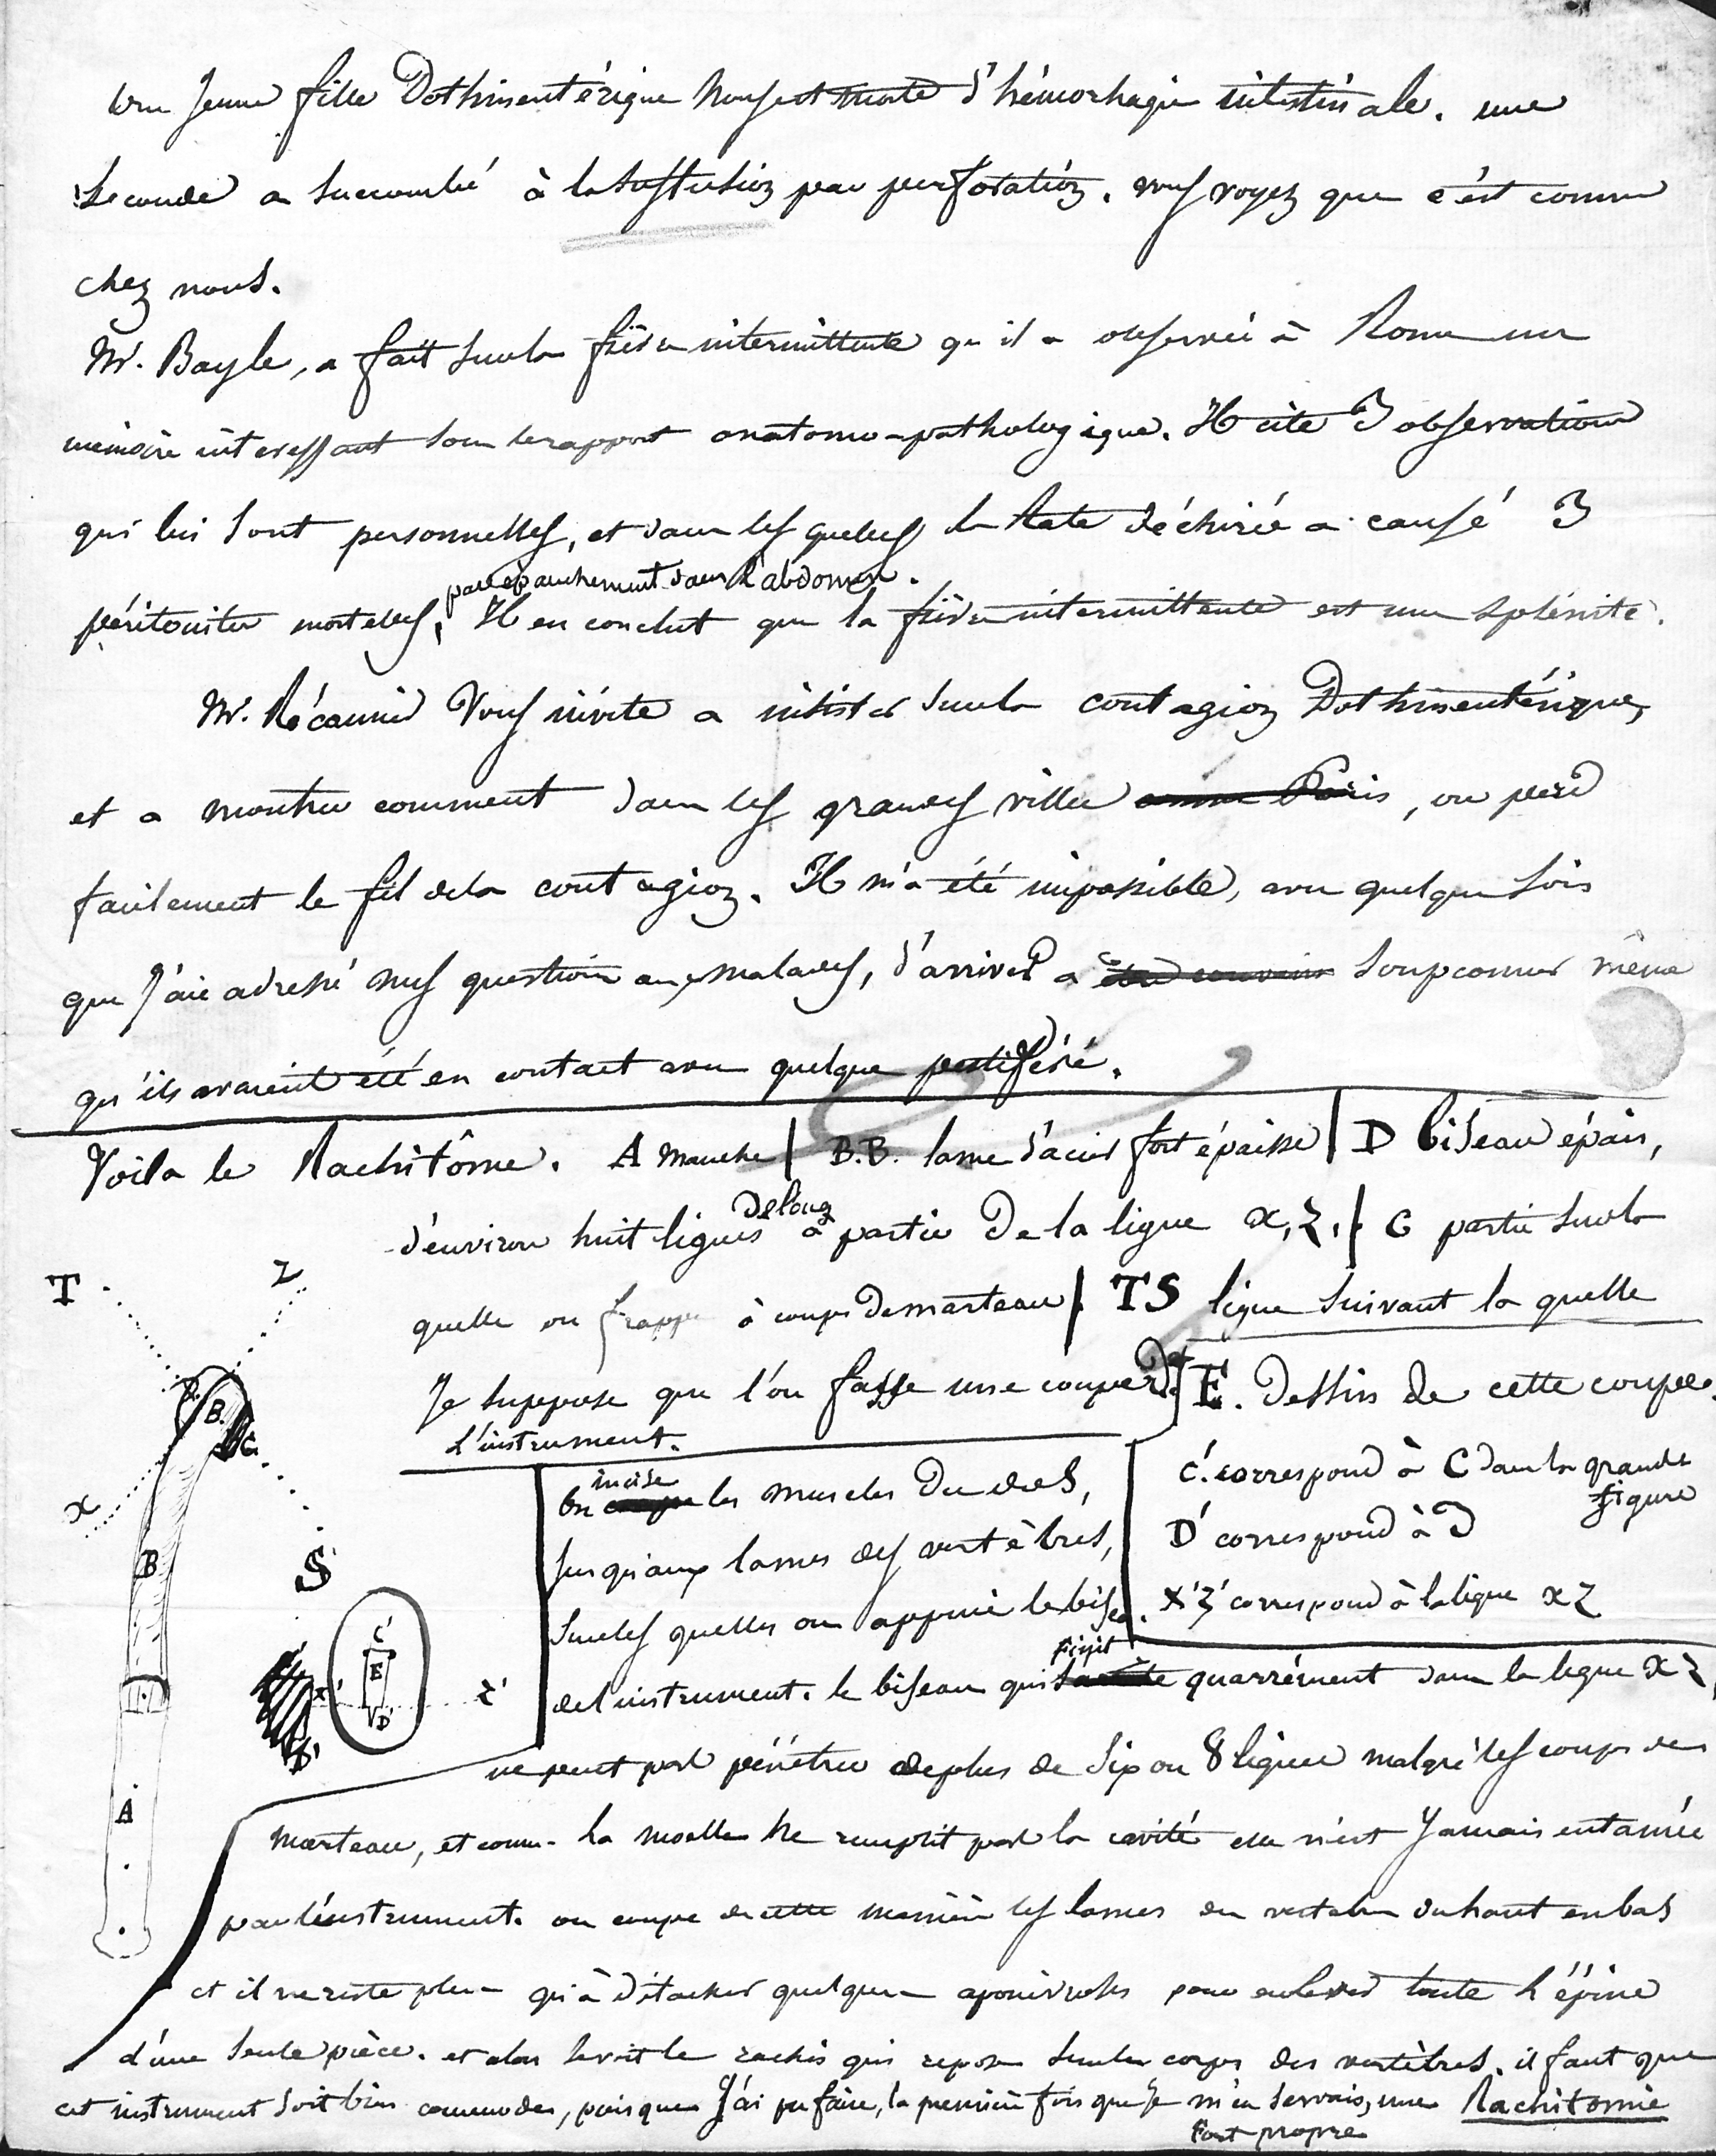 Une jeune fille Dothinentérique nous est morte d'hémorhagie intestinale. une
seconde a succombé à la suffusion par perforation. vous voyez que c'est comme
chez nous.
Mr. Bayle, a fait sur la fièvre intermittente qu'il a observée à Rome un
mémoire intéressant sous le rapport anatomo-pathologique. Il cite 3 observations
qui lui sont personnelles, et dans les quelles la Rate déchirée a causé 3
par épanchement dans l'abdomen.
péritonites mortelles, Il en conclut que la fièvre intermittente est une splénite.
Mr. Récamier Vous invite a insister sur la contagion Dothinentérique,
et a montrer comment dans les grandes villes comme Paris, on perd
facilement le fil de la contagion. Il m'a été impossible, avec quelque soin
que j'aie adressé mes questions aux malades, d'arriver a soupconner même
qu'ils avaient été en contact avec quelque pestiféré.
Voila le Rachitôme. A manche | B.B. lame d'acier fort épaisse | D biseau épais,
d'environ huit lignes de long à partir de la ligne x, z. | C partie sur la
quelle on frappe à coups de marteau | TS ligne suivant la quelle
Je suppose que l'on fasse une coupe de | E. Dessin de cette coupe.
l'instrument.
T
Z
B.
C.
x
B
S
A
C'
E
D'
x'
z'
C' correspond à C dans la grande
figure
D' correspond à D
x'z' correspond à la ligne x z
incise
On coupe les muscles du dos,
jusqu'aux lames des vertèbres,
sur les quelles on appuie le biseau
finit
de l'instrument. le biseau qui quarrément dans la ligne x z,
ne peut pas pénétrer de plus de six ou 8 lignes malgré les coups de
marteau, et comme la moelle ne remplit pas la cavité elle n'est jamais entamée
par l'instrument. on coupe de cette manière les lames des vertèbres du haut en bas
et il ne reste plus qu'à détacher quelques aponévroses pour enlever toute l'épine
d'une seule pièce. et alors se voit le rachis qui repose sur les corps des vertèbres. il faut que
cet instrument soit bien commode, puisque j'ai pu faire, la première fois que je m'en servais, une Rachitomie
fort propre